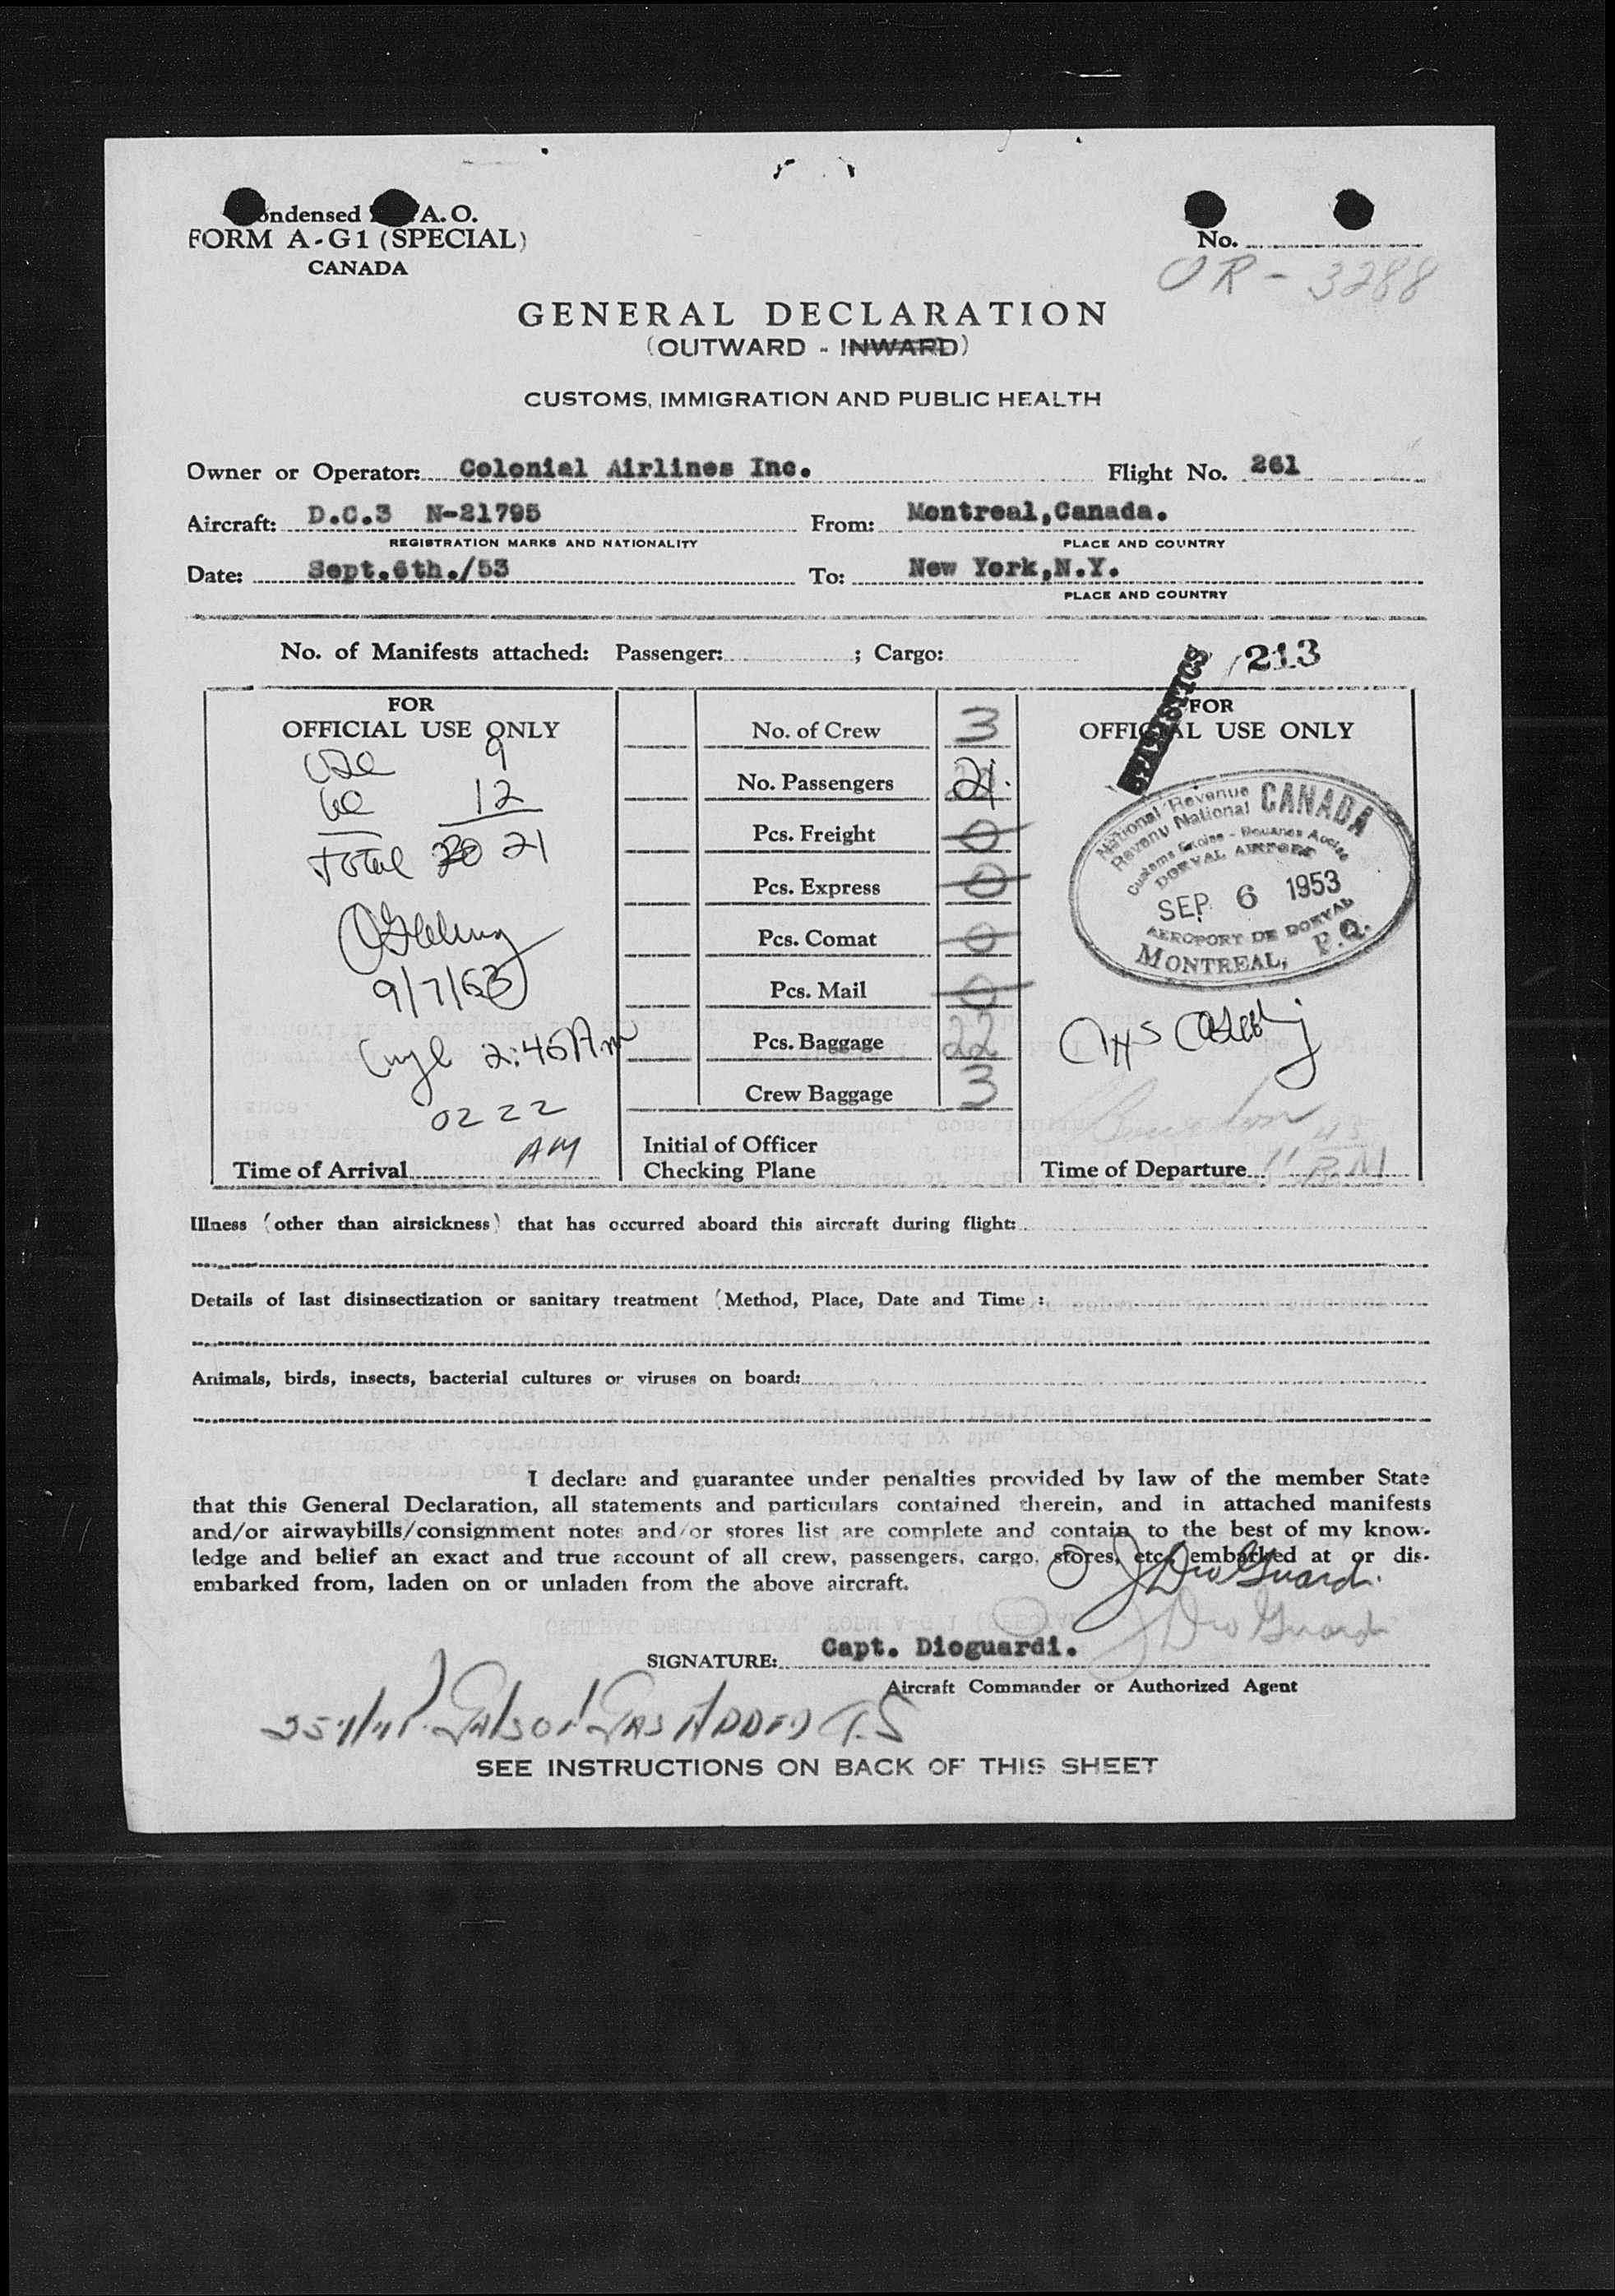 ondensed A.O.
FORM A-G1 (SPECIAL)
CANADA
No.
OR - 3288
GENERAL DECLARATION
(OUTWARD - INWARD)
CUSTOMS, IMMIGRATION AND PUBLIC HEALTH
Owner or Operator: Colonial Airlines Inc. Flight No. 261
Aircraft: D.C.3 N-21795 From: Montreal,Canada.
REGISTRATION MARKS AND NATIONALITY PLACE AND COUNTRY
Date: Sept.6th./53 To: New York,N.Y.
PLACE AND COUNTRY
No. of Manifests attached: Passenger: ; Cargo:
213
STATISTICS
FOR
OFFICIAL USE ONLY
9
12
Total 20 21
9/7/53
2:45 A.m
0222
AM
Time of Arrival
No. of Crew 3
No. Passengers 21
Pcs. Freight 0
Pcs. Express 0
Pcs. Comat 0
Pcs. Mail 0
Pcs. Baggage 22
Crew Baggage 3
Initial of Officer
Checking Plane
FOR
OFFICIAL USE ONLY
National Revenue CANADA
Revenu National
Customs Excise - Douanes Accise
DORVAL AIRPORT
SEP 6 1953
AEROPORT DE DORVAL
MONTREAL, P.Q.
Time of Departure 11 45 P.M
Illness (other than airsickness) that has occurred aboard this aircraft during flight:
Details of last disinsectization or sanitary treatment (Method, Place, Date and Time) :
Animals, birds, insects, bacterial cultures or viruses on board:
I declare and guarantee under penalties provided by law of the member State
that this General Declaration, all statements and particulars contained therein, and in attached manifests
and/or airwaybills/consignment notes and/or stores list are complete and contain to the best of my know-
ledge and belief an exact and true account of all crew, passengers, cargo, stores, etc. embarked at or dis-
embarked from, laden on or unladen from the above aircraft.
J DioGuardi
J DioGuardi
SIGNATURE: Capt. Dioguardi.
Aircraft Commander or Authorized Agent
Gas Added T.S
SEE INSTRUCTIONS ON BACK OF THIS SHEET